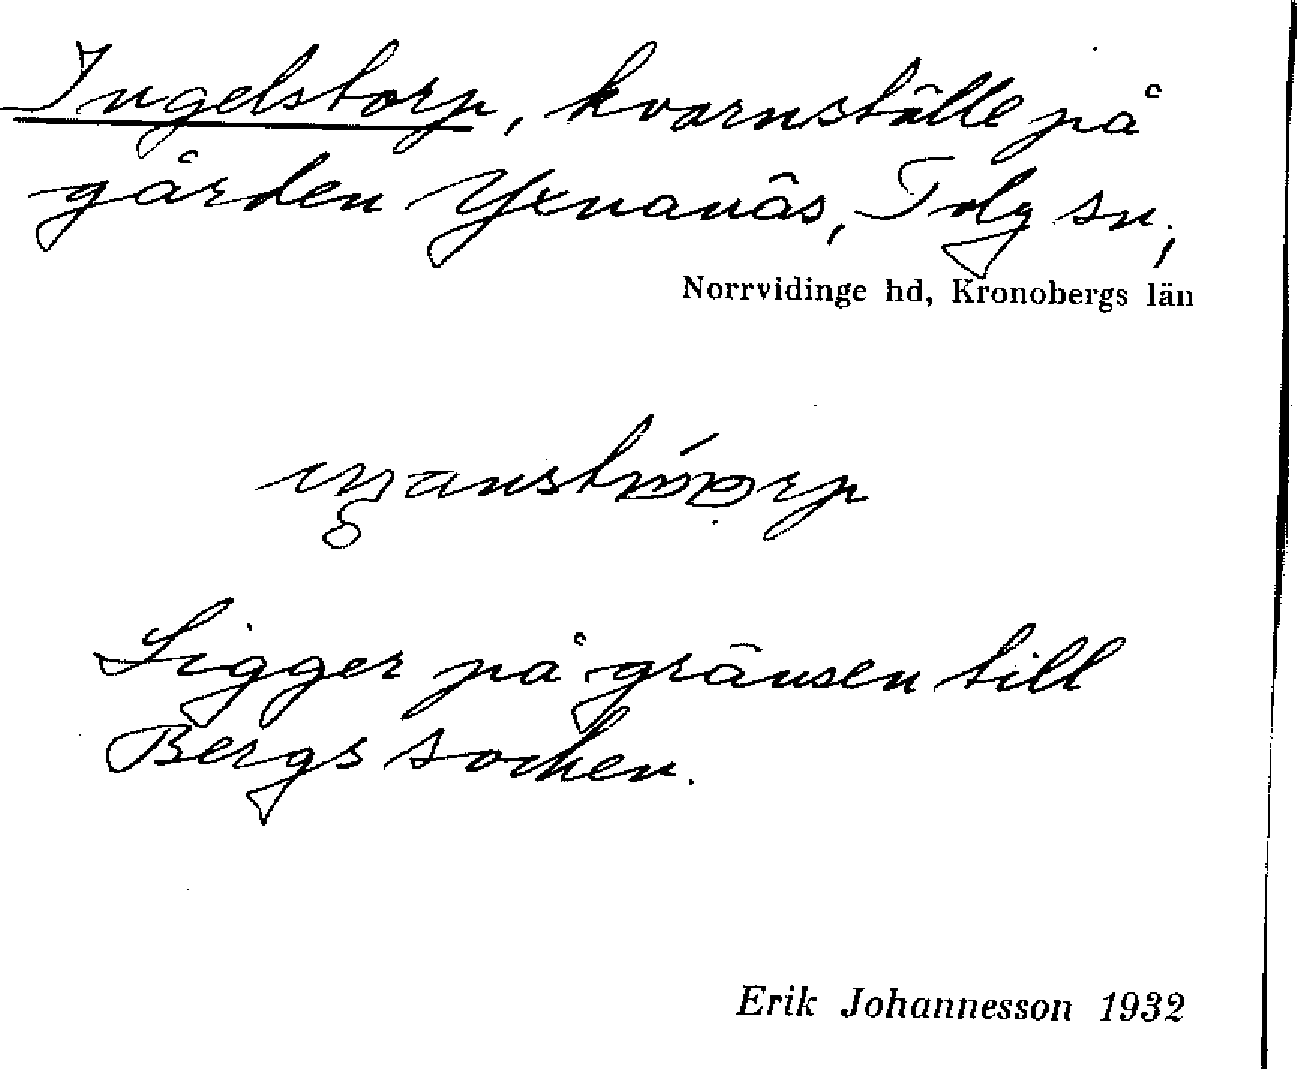 Ingelstorp, kvarnställe på
gården Yxnanäs, Tolg sn,
Norrvidinge hd, Kronobergs län
Ligger på gränsen till
Bergs socken.
Erik Johannesson 1932